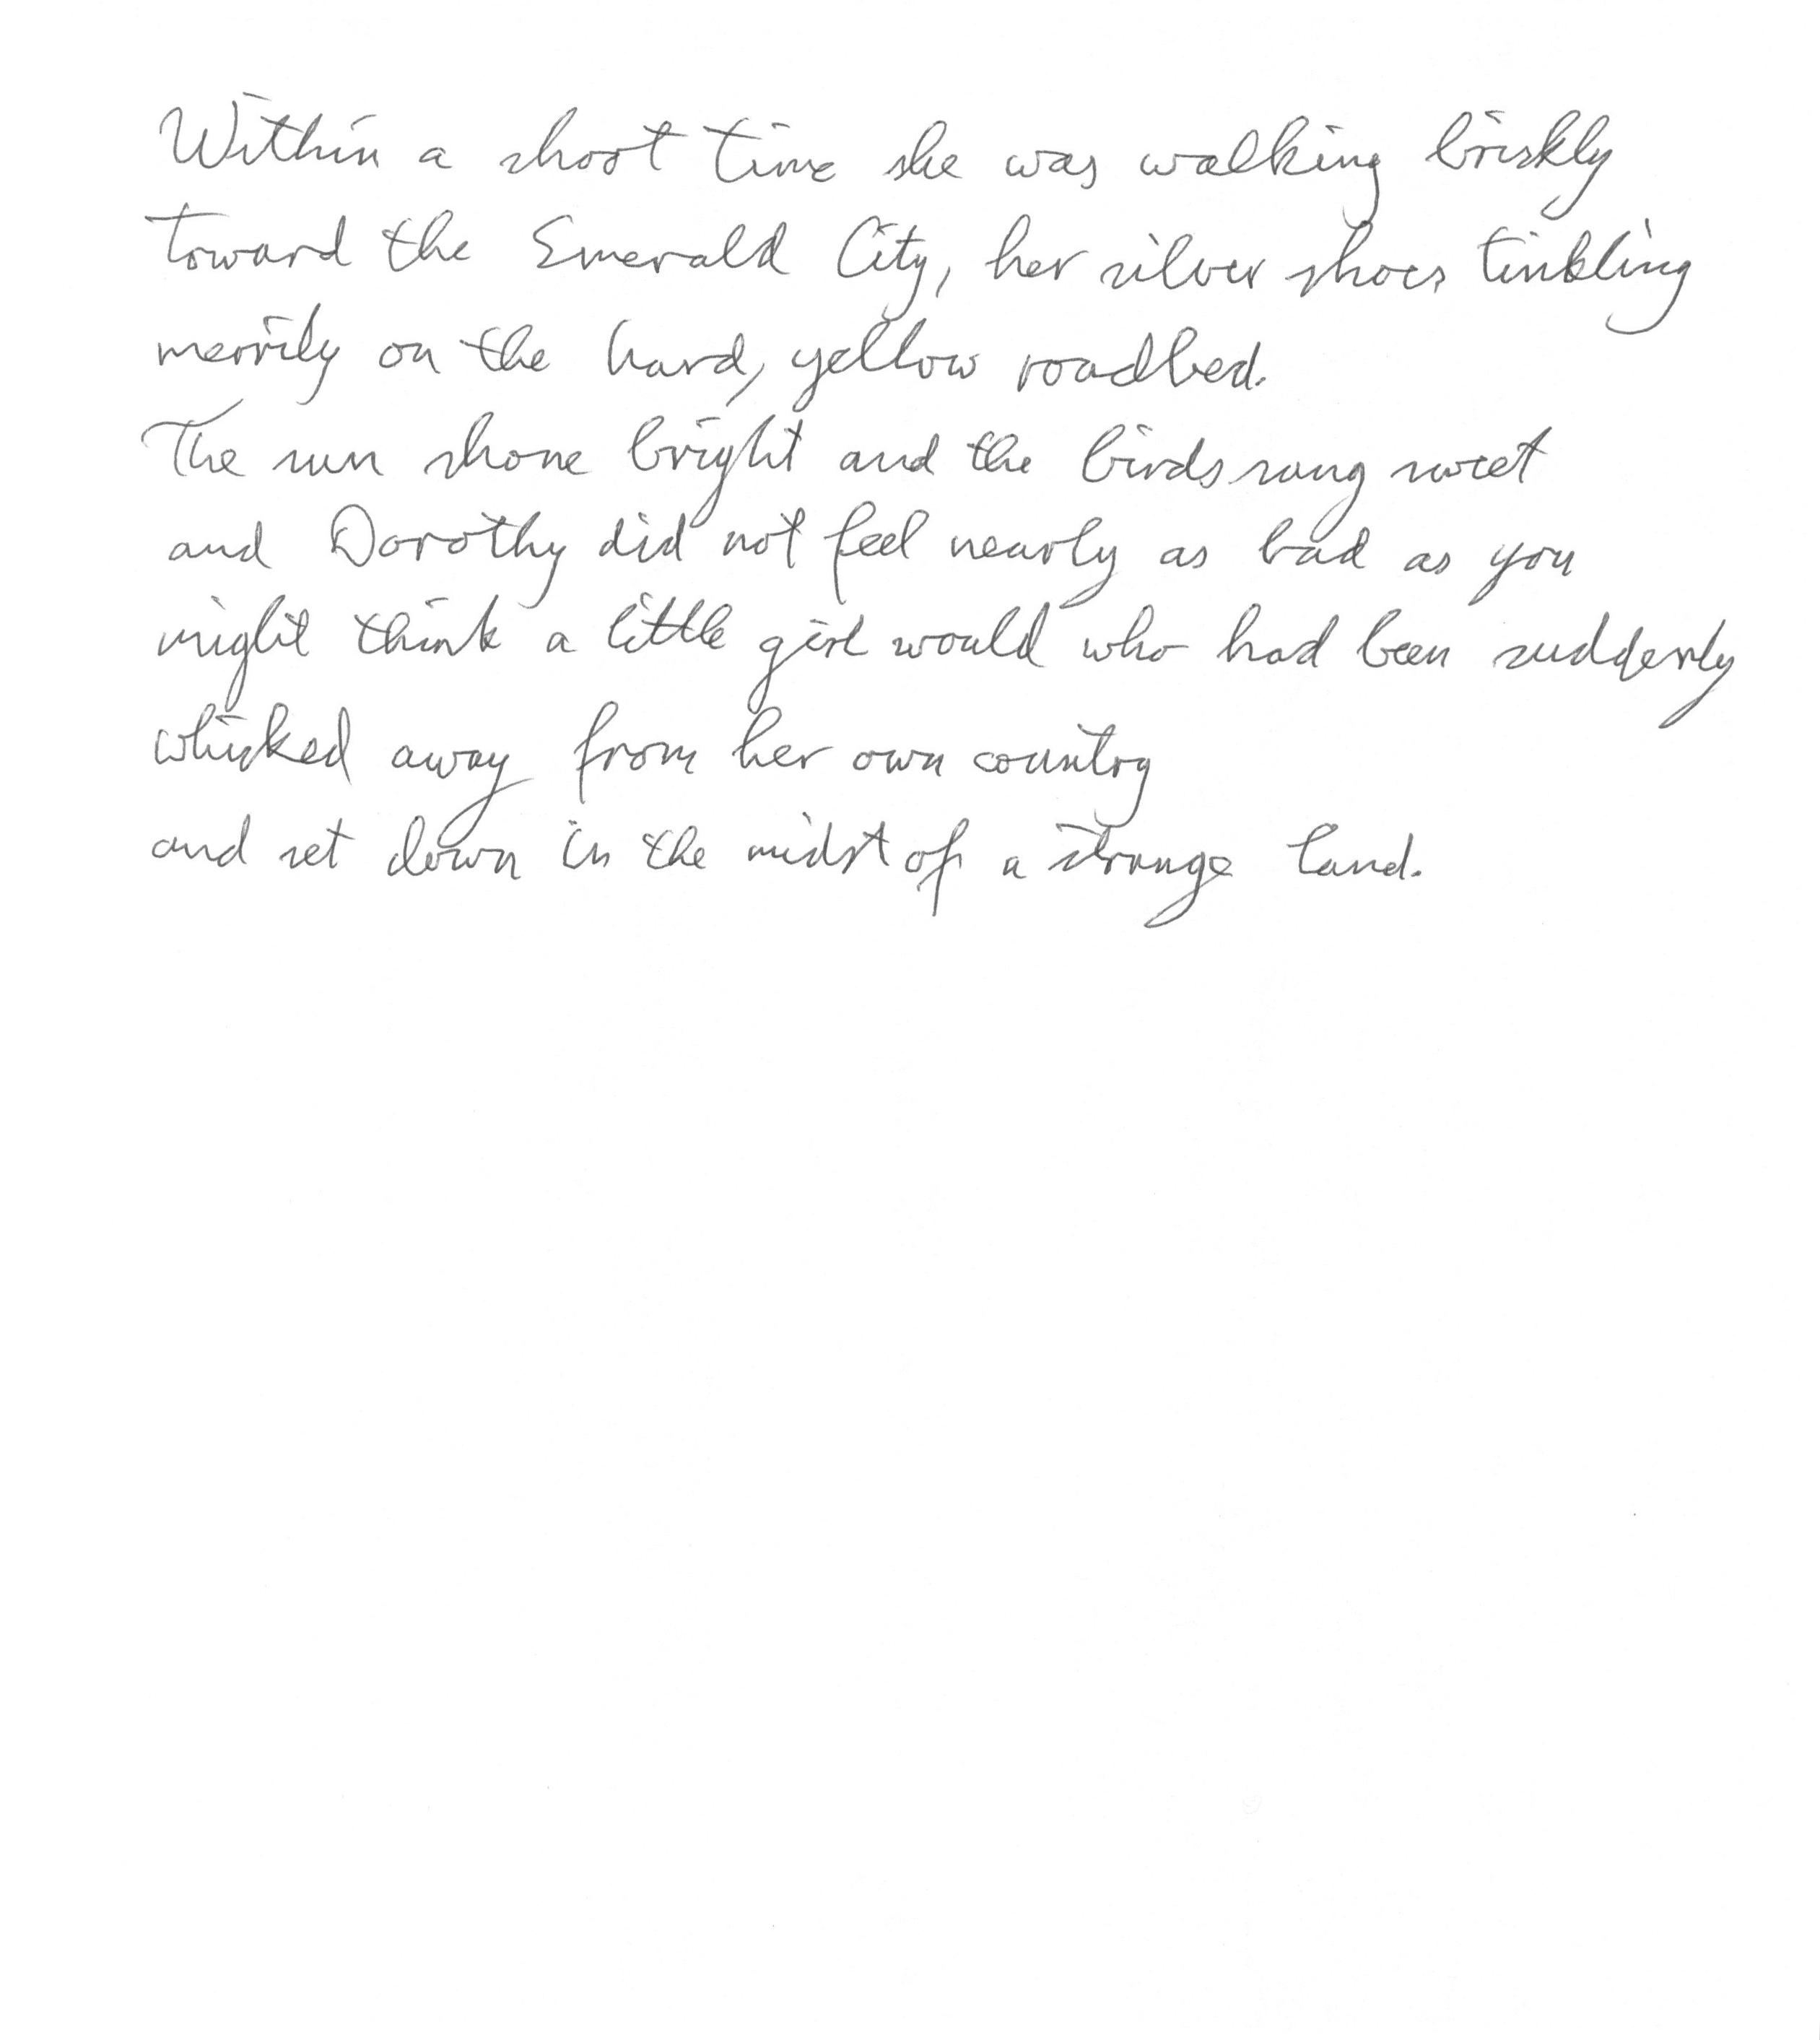 Within a short time she was walking briskly
toward the Emerald City, her silver shoes tinkling
merrily on the hard, yellow roadbed.
The sun shone bright and the birds sung sweet
and Dorothy did not feel nearly as bad as you
might think a little girl would who had been suddenly
whisked away from her own country
and set down in the midst of a strange land.